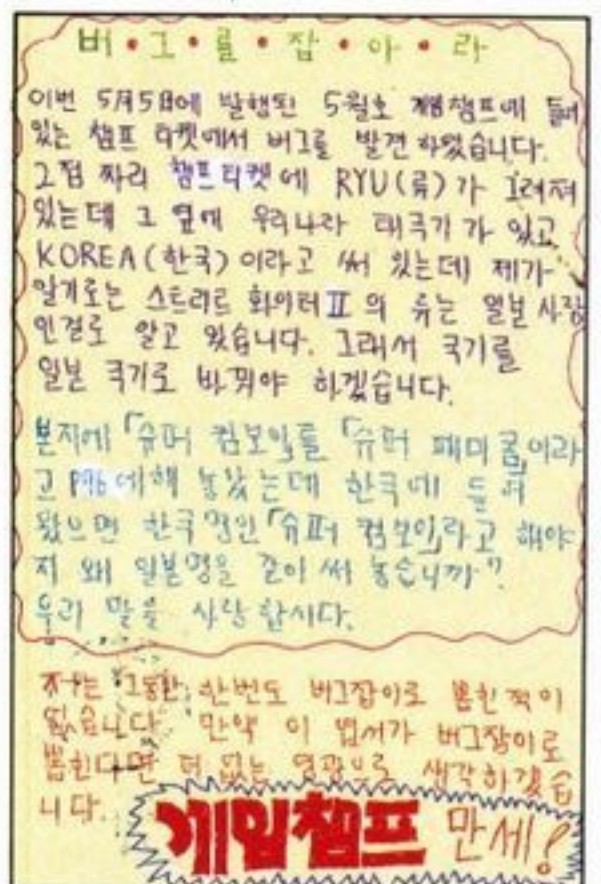 버•그•를•잡•아•라
이번 5月5日에 발행된 5월호 게임챔프에 들어
있는 챔프 티켓에서 버그를 발견 하였습니다.
2점 짜리 챔프티켓에 RYU(류)가 그려져
있는데 그 옆에 우리나라 태극기가 있고
KOREA(한국)이라고 써 있는데 제가
알기로는 스트리트 화이터Ⅱ의 류는 일본 사람
인걸로 알고 있습니다. 그래서 국기를
일본 국기로 바꿔야 하겠습니다.
본지에「슈퍼 컴보이」를「슈퍼 패미콤」이라
고 P96에 해 놓았는데 한국에 들여
왔으면 한국명인「슈퍼 컴보이」라고 해야
지 왜 일본명을 같이 써 놓습니까"?
우리 말을 사랑합시다.
저는 그동안 한번도 버그잡이로 뽑힌 적이
없습니다. 만약 이 엽서가 버그잡이로
뽑힌다면 더 없는 영광으로 생각하겠습
니다.
게임챔프 만세!